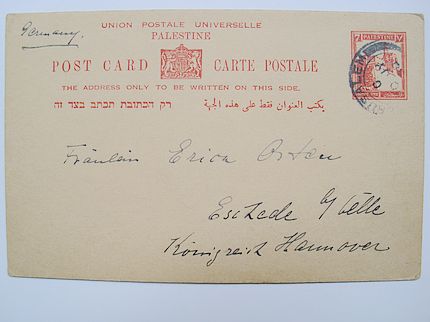 Germany.
UNION POSTALE UNIVERSELLE
PALESTINE
POST CARD CARTE POSTALE
THE ADDRESS ONLY TO BE WRITTEN ON THIS SIDE.
רק הכתובת תכתב בצד זה يكتب العنوان فقط على هذه الجهة
7 PALESTINE ٧
Fräulein Erica Osten
Eschede b/Celle
Königreich Hannover